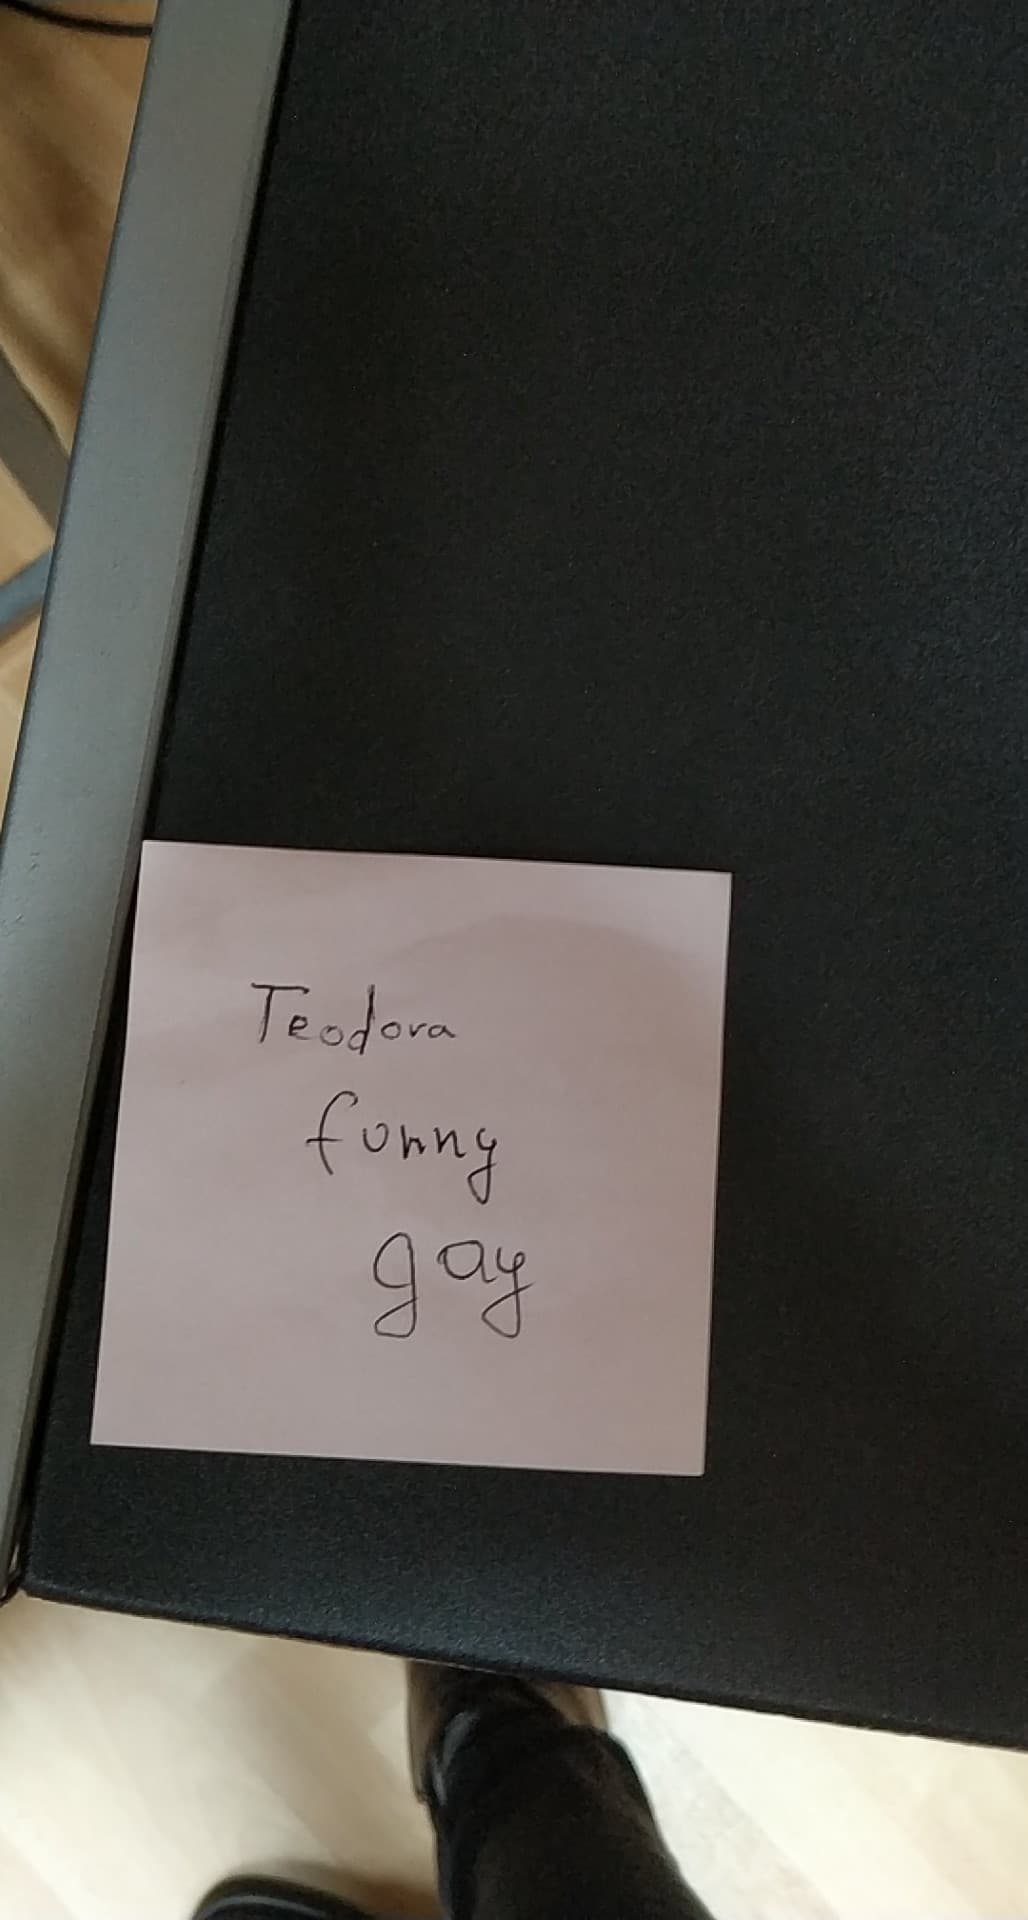 Teodora
funny
gay